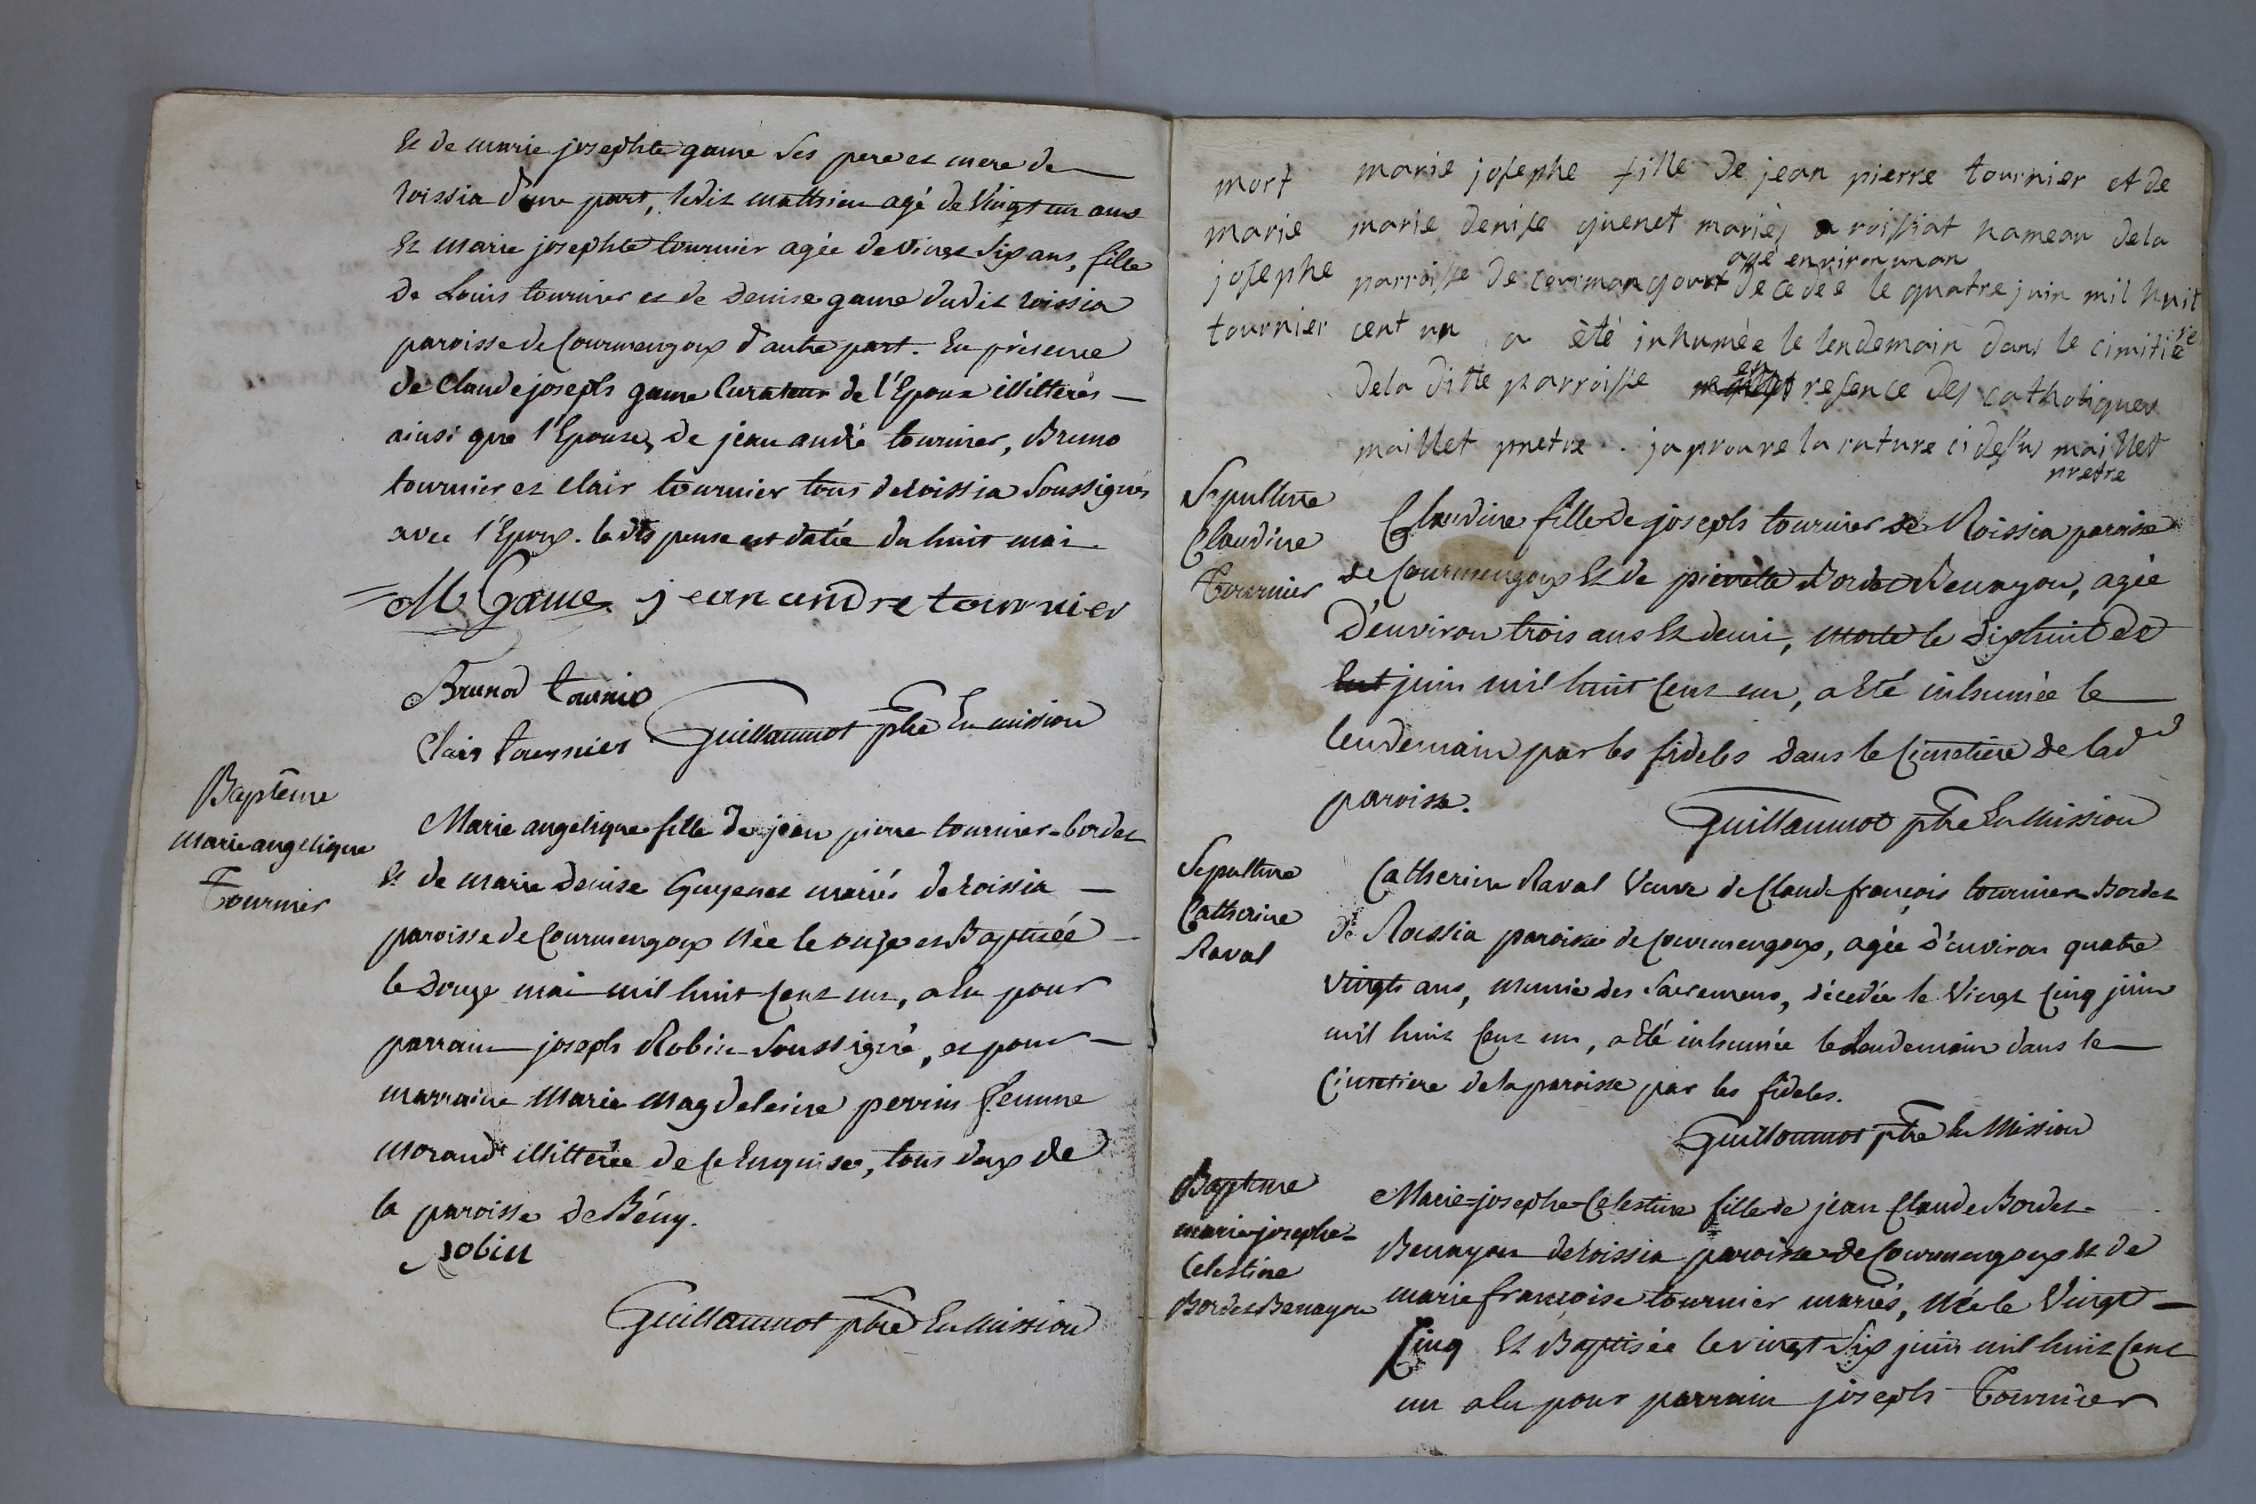 Et de marie josephte game ses pere et mere de
roissia d'une part, ledit mathieu agé de Vingt un ans
Et marie josephte tournier agée de vingt Six ans, fille
de Louis tournier et de denise game dudit roissia
paroisse de Courmengoux d'autre part. En présence
de Claude joseph game Curateur de l'Epoux illitterés
ainsi que l'Epouse, de jean andré tournier, Bruno
tournier et Clair tournier tous de roissia Soussignés
avec l'Epoux. la dispense est datée du huit mai
M Game jean andre tournier
Brunod tournie
Clair tournier Guillaumot ptre En mission
Baptême
Marie angelique
Tournier
Marie angelique fille de jean pierre tournier-bordet
Et de marie denise Guyenet mariés de roissia
paroisse de Courmengoux Née le onze et Baptisée
le douze mai mil huit Cent un, a Eu pour
parrain joseph Robin Soussigné, et pour
marraine Marie Magdeleine perrin femme
morand illitterée de , tous deux de
la paroisse de Bény.
Robin
Guillaumot ptre En Mission
mort
marie
josephe
tournier
marie josephe fille de jean pierre tournier et de
marie denise guenet mariés a roissiat hameau de la
agé environ un an
parroisse de cormangout decedée le quatre juin mil huit
cent un a été inhumée le lendemain dans le cimitiere
en
de la ditte parroisse presence des catholiques
maillet pretre . japrouve la rature ci dessus maillet
pretre
Sepulture
Claudine
Tournier
Claudine fille de joseph tournier de Roissia paroisse
de Courmengoux Et de pierrete Bordet Benayon, agée
D'environ trois ans Et demi, morte le dixhuit de
juin mil huit Cent un, a Eté inhumée le
lendemain par les fideles dans le Cimetiere de lad
paroisse.
Guillaumot ptre En Mission
Sepulture
Catherine
Raval
Catherine Raval Veuve de Claude françois tournier Bordet
de Roissia paroisse de Courmengoux, agée d'environ quatre
Vingts ans, munie des Sacremens, décedée le Vingt Cinq juin
mil huit Cent un, a Eté inhumée le Lendemain dans le
Cimetiere de la paroisse par les fideles.
Guillaumot ptre En Mission
Baptême
marie-josephe-
Celestine
Bordet Benayon
Marie-josephe-Celestine fille de jean Claude Bordet-
Benayon de roissia paroisse de Courmengoux Et de
marie françoise tournier mariés, Née le Vingt
Cinq Et Baptisée le vingt Six juin mil huit Cent
un a Eu pour parrain joseph Tournier